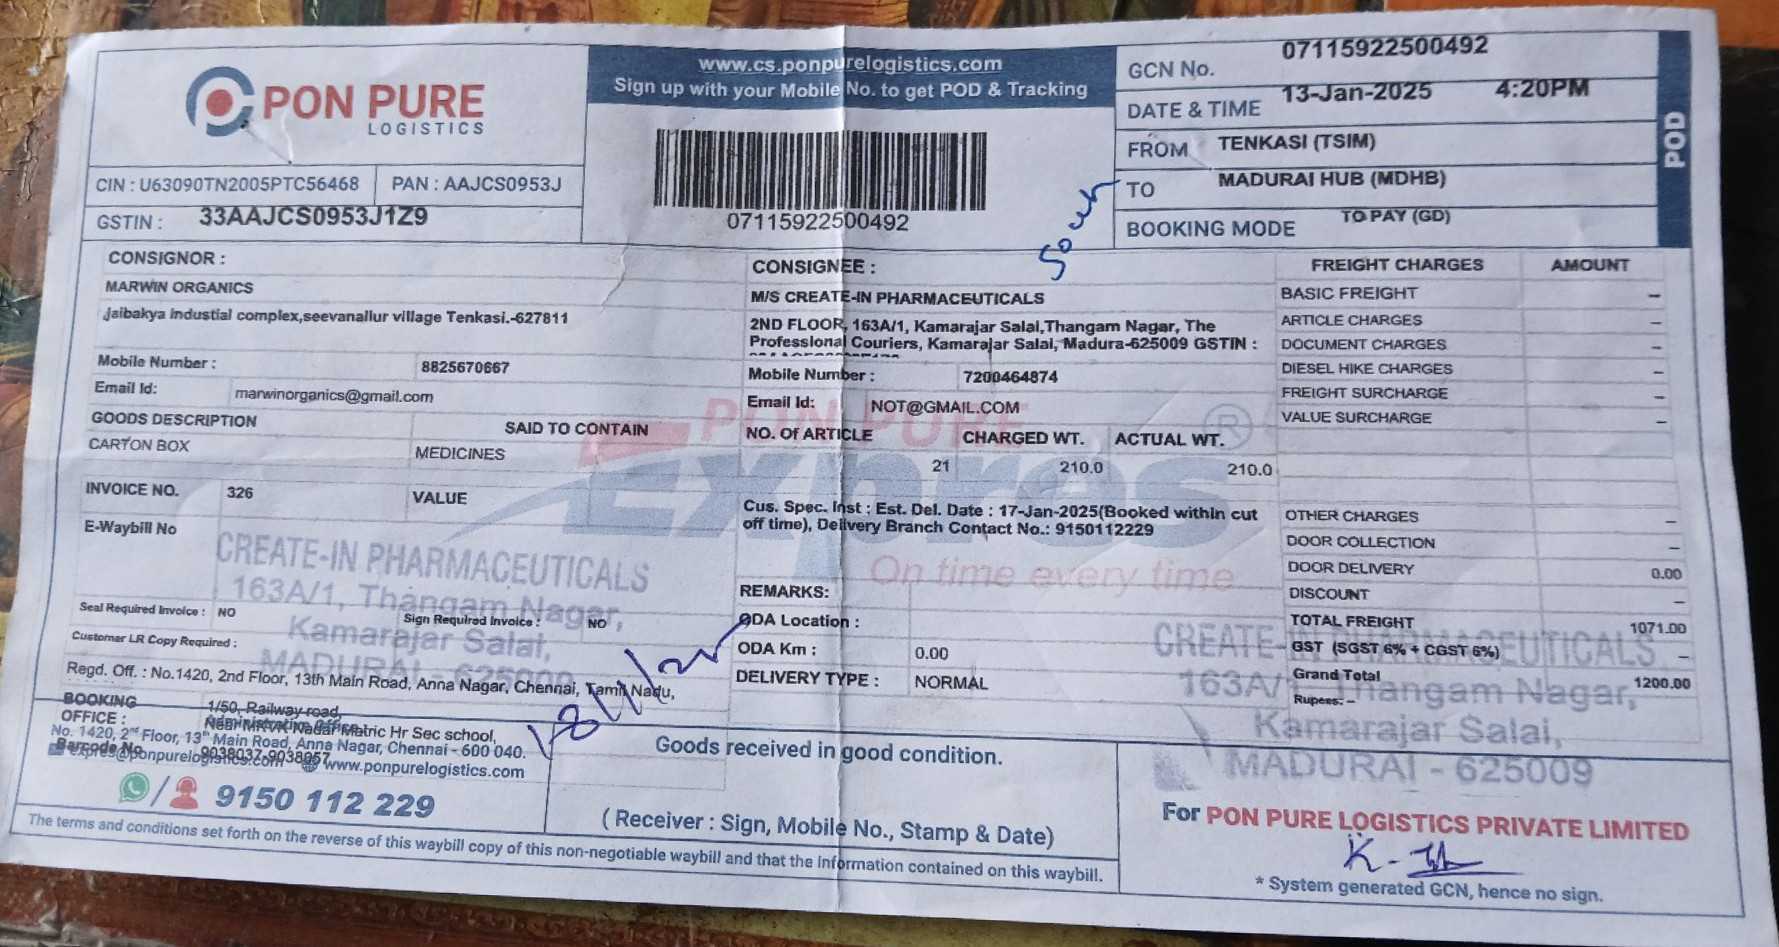 PON PURE
LOGISTICS
CIN : U63090TN2005PTC56468 PAN : AAJCS0953J
GSTIN : 33AAJCS0953J1Z9
www.cs.ponpurelogistics.com
Sign up with your Mobile No. to get POD & Tracking
07115922500492
GCN No. 07115922500492
DATE & TIME 13-Jan-2025 4:20PM
FROM TENKASI (TSIM)
TO MADURAI HUB (MDHB)
BOOKING MODE TO PAY (GD)
POD
CONSIGNOR :
MARWIN ORGANICS
Jaibakya industial complex,seevanallur village Tenkasi.-627811
Mobile Number : 8825670667
Email Id: marwinorganics@gmail.com
GOODS DESCRIPTION SAID TO CONTAIN
CARTON BOX MEDICINES
INVOICE NO. 326 VALUE
E-Waybill No
CREATE-IN PHARMACEUTICALS
163A/1, Thangam Nagar,
Kamarajar Salai,
MADURAI - 625009
Seal Required Invoice : NO Sign Required Invoice : NO
Customer LR Copy Required :
Regd. Off. : No.1420, 2nd Floor, 13th Main Road, Anna Nagar, Chennai, Tamil Nadu,
CONSIGNEE :
M/S CREATE-IN PHARMACEUTICALS
2ND FLOOR, 163A/1, Kamarajar Salai,Thangam Nagar, The
Professional Couriers, Kamarajar Salai, Madura-625009 GSTIN :
Mobile Number : 7200464874
Email Id: NOT@GMAIL.COM
NO. Of ARTICLE CHARGED WT. ACTUAL WT.
21 210.0 210.0
PON PURE
Expres
On time every time
Cus. Spec. Inst : Est. Del. Date : 17-Jan-2025(Booked within cut
off time), Delivery Branch Contact No.: 9150112229
REMARKS:
ODA Location :
ODA Km : 0.00
DELIVERY TYPE : NORMAL
FREIGHT CHARGES AMOUNT
BASIC FREIGHT –
ARTICLE CHARGES –
DOCUMENT CHARGES –
DIESEL HIKE CHARGES –
FREIGHT SURCHARGE –
VALUE SURCHARGE –
OTHER CHARGES –
DOOR COLLECTION –
DOOR DELIVERY 0.00
DISCOUNT –
TOTAL FREIGHT 1071.00
GST (SGST 6% + CGST 6%) –
Grand Total 1200.00
Rupees: –
CREATE-IN PHARMACEUTICALS
163A/1, Thangam Nagar,
Kamarajar Salai,
MADURAI - 625009
BOOKING OFFICE :
1/50, Railway road,
Near MKVK Nadar Matric Hr Sec school,
Administrative Office
No. 1420, 2nd Floor, 13th Main Road, Anna Nagar, Chennai - 600 040.
Barcode No 9038037-9038057
expres@ponpurelogistics.com www.ponpurelogistics.com
9150 112 229
Goods received in good condition.
(Receiver : Sign, Mobile No., Stamp & Date)
The terms and conditions set forth on the reverse of this waybill copy of this non-negotiable waybill and that the information contained on this waybill.
For PON PURE LOGISTICS PRIVATE LIMITED
* System generated GCN, hence no sign.